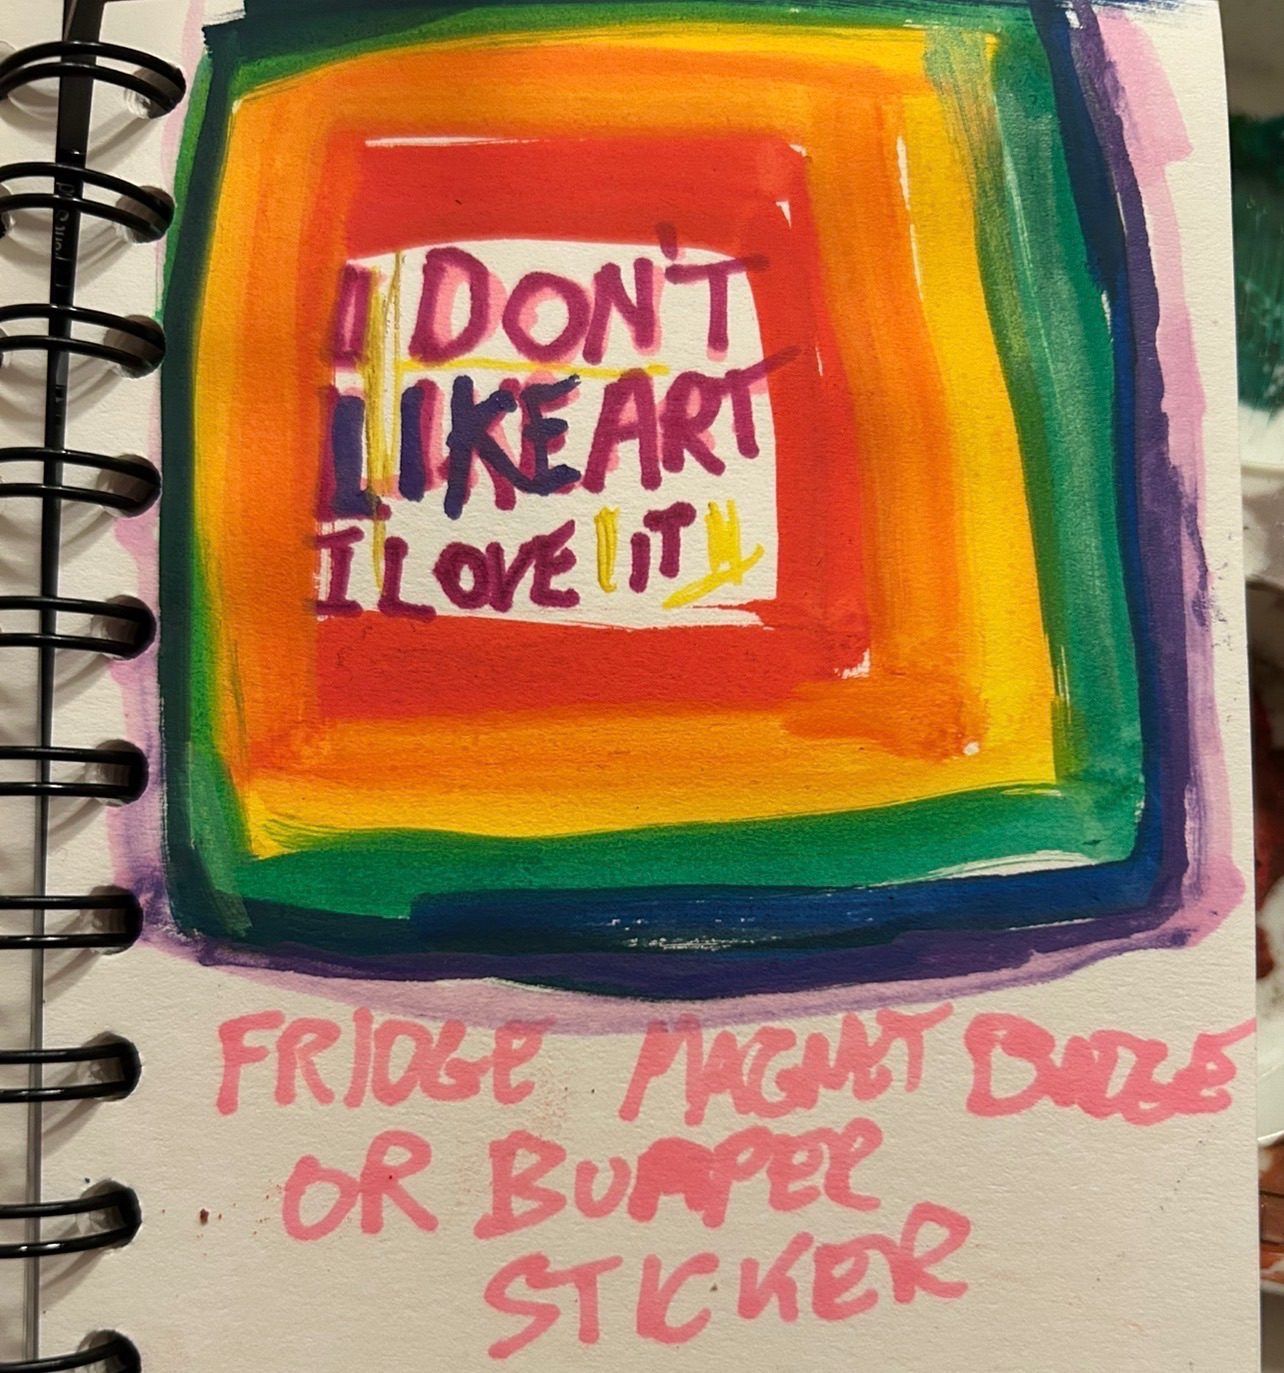 I DON'T
LIKE ART
I LOVE "IT"
FRIDGE MAGNET BADGE
OR BUMPER
STICKER